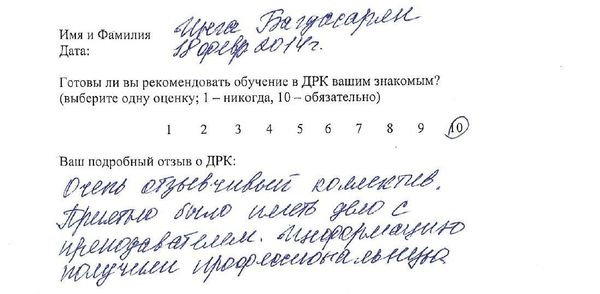 Имя и Фамилия Инга Багдасарян
Дата: 18 февр 2014г.
Готовы ли вы рекомендовать обучение в ДРК вашим знакомым?
(выберите одну оценку; 1 – никогда, 10 – обязательно)
1 2 3 4 5 6 7 8 9 10
Ваш подробный отзыв о ДРК:
Очень отзывчивый коллектив.
Приятно было иметь дело с
преподавателем. Информацию
получили профессиональную